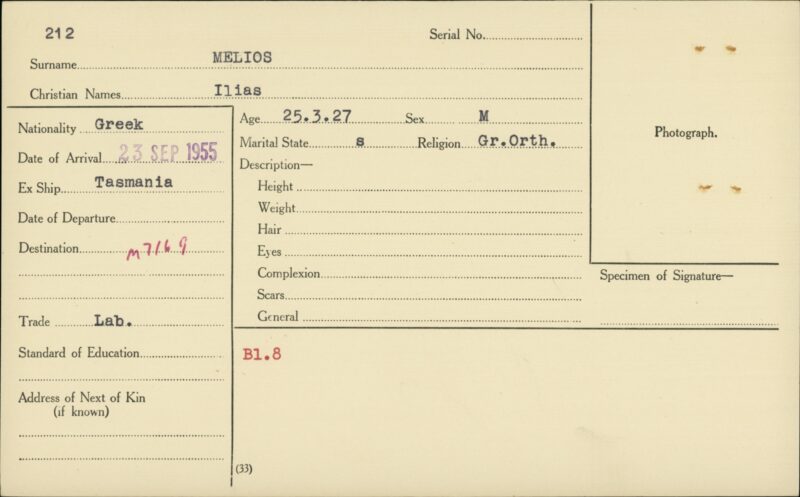 212
Serial No.
Surname MELIOS
Christian Names Ilias
Nationality Greek
Date of Arrival 23 SEP 1955
Ex Ship Tasmania
Date of Departure
Destination M7169
Trade Lab.
Standard of Education
Address of Next of Kin
(if known)
Age 25.3.27 Sex M
Marital State s Religion Gr.Orth.
Description—
Height
Weight
Hair
Eyes
Complexion
Scars
General
B1.8
(33)
Photograph.
Specimen of Signature—